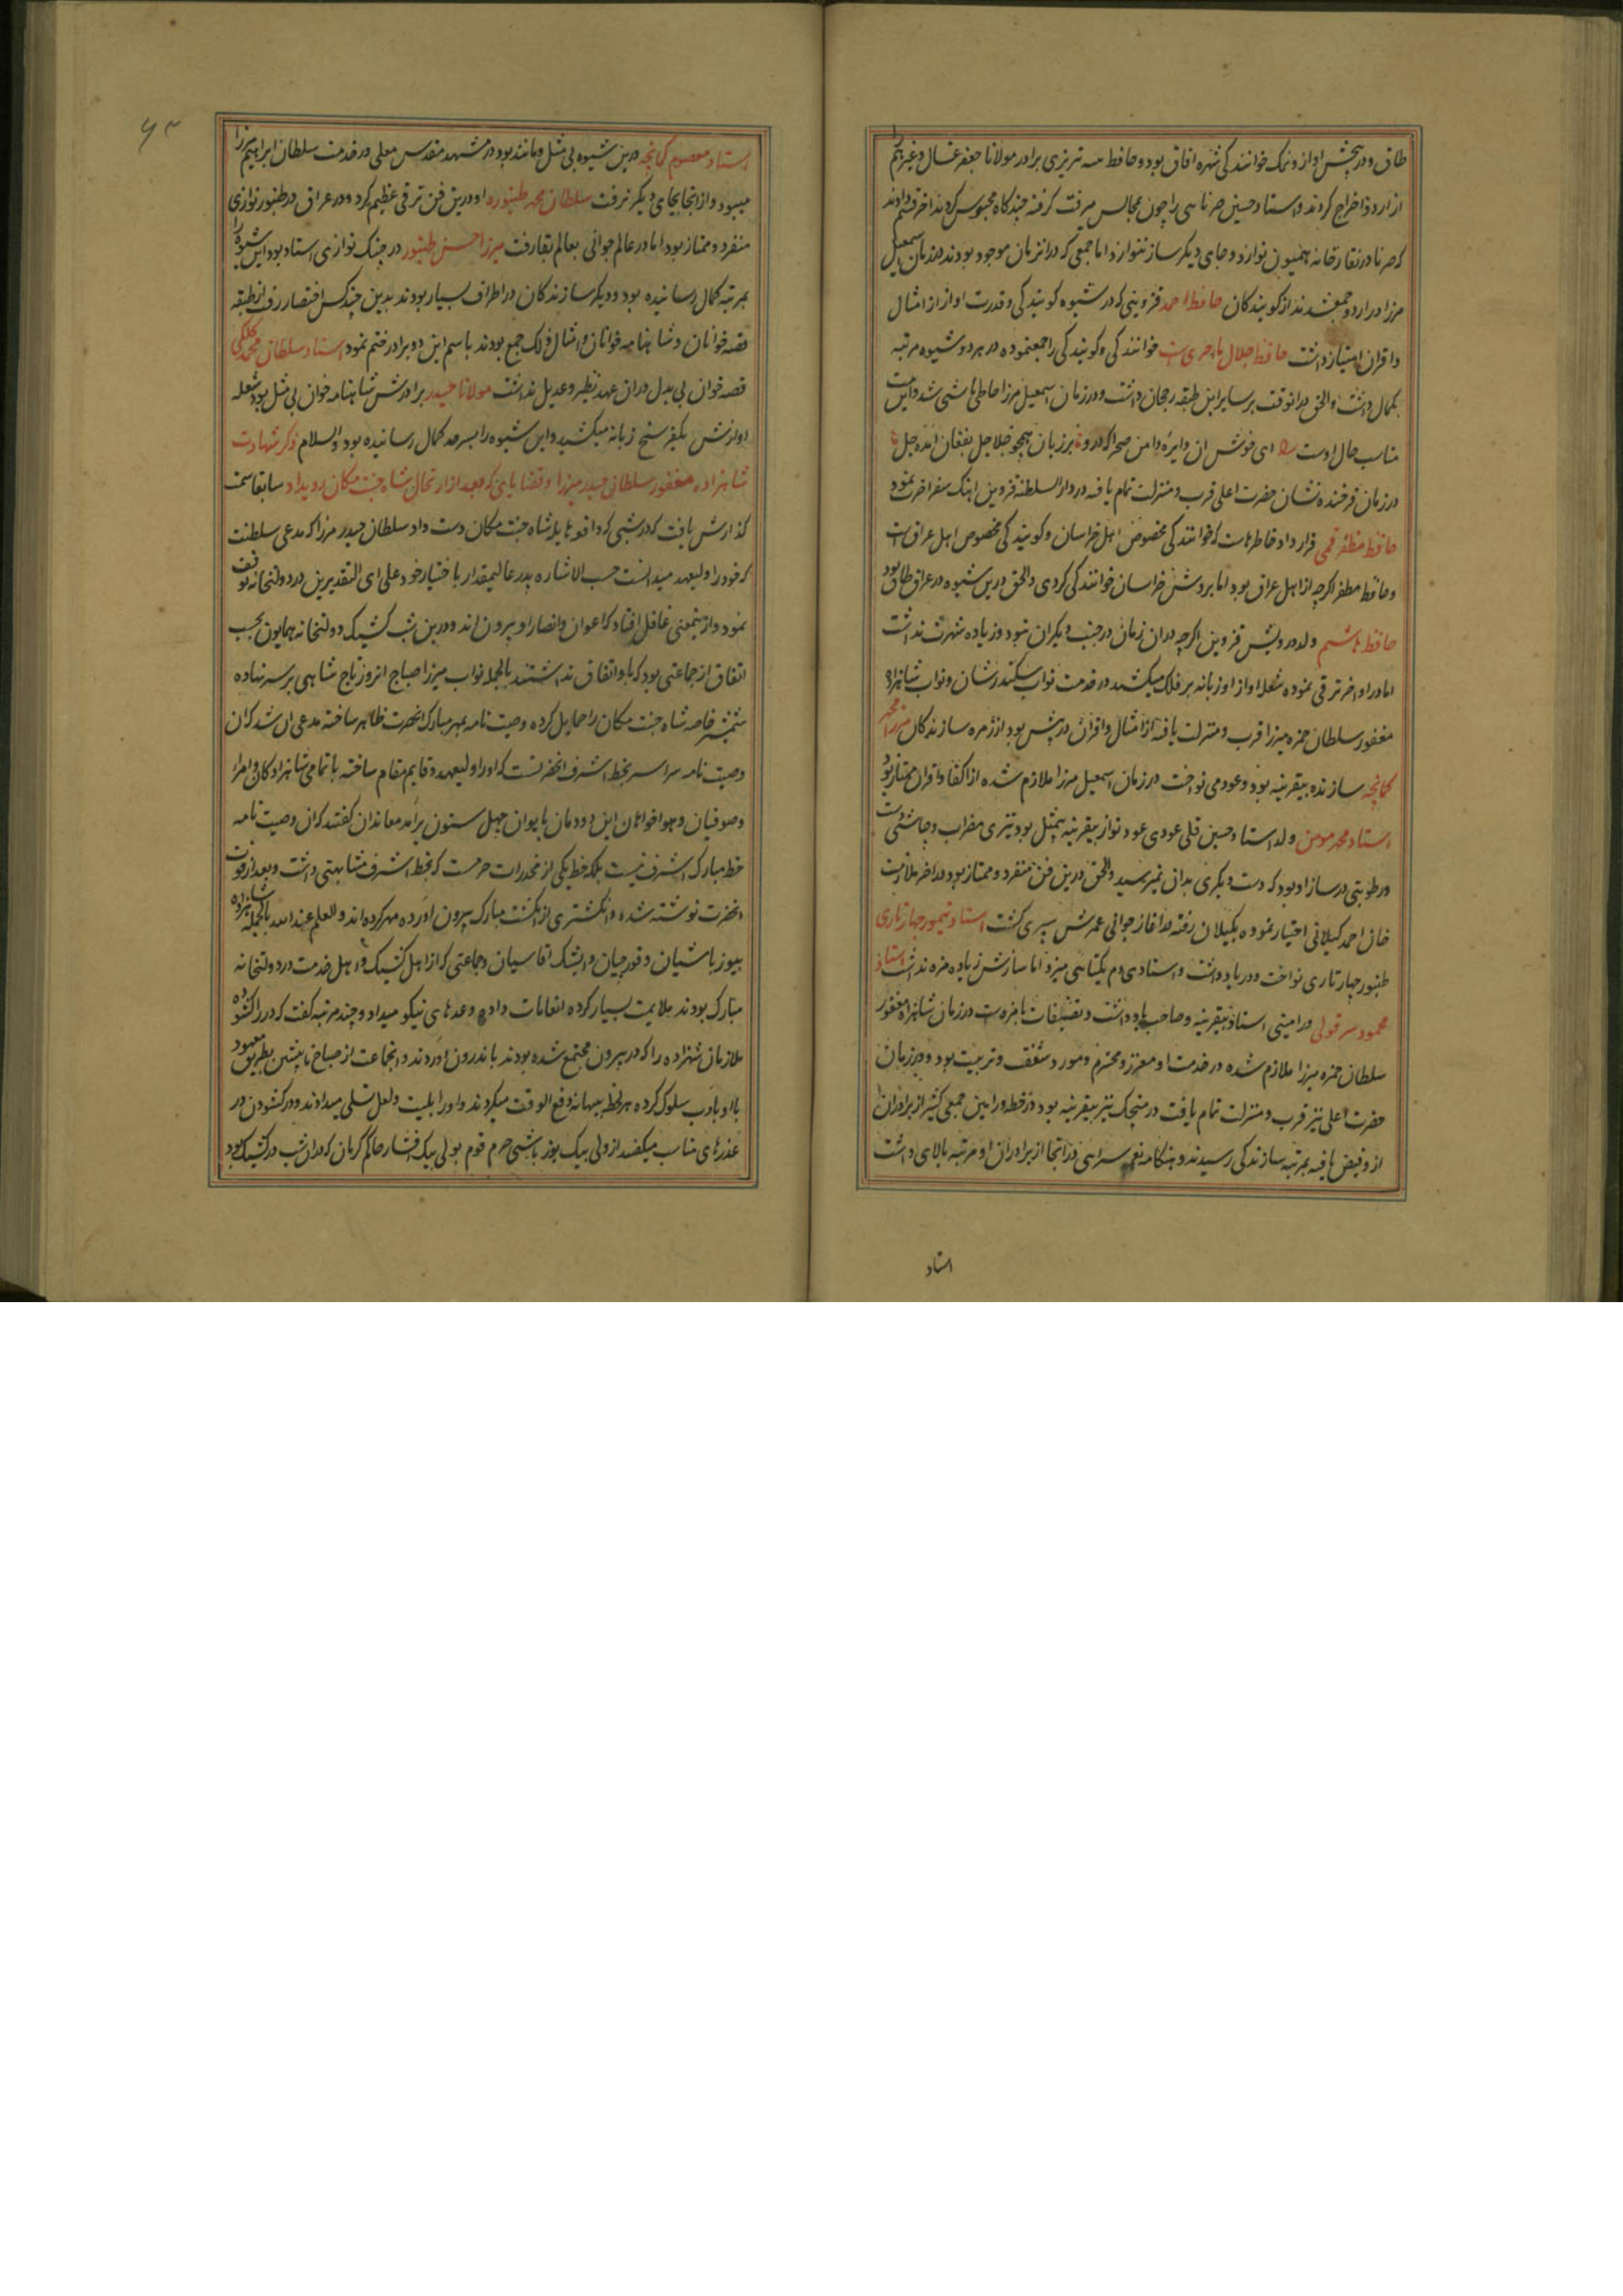 طاق و در بخش اواز و نمک خوانندکی شهره افاق بود و حافظ سه تبریزی برادر مولانا جعفر غسال وغیرهم را
از اردو اخراج کردند و استاد حسین سرنایی را چون بمجالس میرفت کرفته چندکاه محبوس کردند اخر قسم دادند
که سرنا در نقارخانه همیون نوازد و جای دیکر ساز ننوازد اما جمعی که در انزمان موجود بودند و در زمان اسمعیل
مرزا در اردو جمعشدند از کویندکان حافظ احمد قزوینی که در شیوه کویندکی و قدرت اواز از امثال
و اقران امتیاز داشت حافظ جلال باخرزی است خوانندکی و کویندکی را جمعنموده در هر دو شیوه مرتبه
کمال داشت و الحق در انوقت بر سایر این طبقه رجحان داشت و در زمان اسمعیل مرزا حافظ باشی شد و این بیت
مناسب حال اوست ای خوش ان دایره و دامن صحرا که درو بر زبان همچو جلاجل بفغان امده جل
در زمان فرخنده نشان حضرت اعلی قرب و منزلت تمام یافته در دارالسلطنه قزوین اهنک سفر اخرت نمود
حافظ مظفر قمی قرار داد خاطرهاست که خوانندکی مخصوص اهل خراسان و کویندکی مخصوص اهل عراق است
و حافظ مظفر اکرچه از اهل عراق بود اما بروش خراسان خوانندکی کردی و الحق درین شیوه در عراق طاق بود
حافظ هاشم ولد درویش قزوین اکرچه در ان زمان در جنب دیکران نبود و زیاده شهرت نداشت
اما در اواخر ترقی نموده شعله اواز او زبانه بر فلک میکشید در خدمت نواب سکندر شان و نواب شاهزاده
مغفور سلطان حمزه میرزا قرب و منزلت یافته از امثال و اقران در پیش بود از زمره سازندکان میرزا محمد
کمانچه سازنده بیقرینه بود و عود می نواخت در زمان اسمعیل مرزا ملازم شده از اکفا و اقران ممتاز بود
استاد محمد مومن ولد استاد حسین قلی عودی عود نواز بیقرینه بیمثل بود تیزی مضراب و چاشنی دست
و رطوبتی در ساز او بود که دست دیکری بدان نمیرسید و الحق درین فن منفرد و ممتاز بود در اخر ملازمت
خان احمد کیلانی اختیار نموده بکیلان رفته در اغاز جوانی عمرش سپری کشت استاد شهسوار چهارتاری
طنبور چهارتاری نواخت و در یاد داشت و استادی دم یکتایی میزد اما سازش زیاده مزه نداشت استاد
سلطان حمزه میرزا ملازم شده در خدمت او معزز و محترم و مورد شفقت و تربیت بود و در زمان
حضرت اعلی نیز قرب و منزلت تمام یافت
از و فیض یافته بمرتبه سازندکی رسیدند و هنکامه نغمه سرایی در انجا از برادران او مرتبه بالای داشت
استاد
استاد معصوم کمانچه درین شیوه بی مثل و مانند بود در مشهد مقدس معلی در خدمت سلطان ابراهیم میرزا
میبود و از انجا بجای دیکر نرفت سلطان محمد طنبوره او درین فن ترقی عظیم کرد و در عراق در طنبور نوازی
منفرد و ممتاز بود اما در عالم جوانی بعالم بقا رفت میرزا حسین طنبور در چنک نوازی استاد بود این شیوه را
بمرتبه کمال رسانیده بود و دیکر سازندکان در اطراف بسیار بودند بدین چند کس اختصار رفت از طبقه
قصه خوانان و شاهنامه خوانان و امثال ذلک جمع بودند باسم این دو برادر ختم نمود استاد سلطان محمد
قصه خوان بی بدل در ان عهد نظیر و عدیل نداشت مولانا حیدر برادرش شاهنامه خوان بی مثل بود شعله
اوازش یکفرسخ زبانه میکشید و این شیوه را بسرحد کمال رسانیده بود والسلام ذکر شهادت
شاهزاده مغفور سلطان حیدر میرزا و قضایایی که بعد از ارتحال شاه جنت مکان رویداد سابقا سمت
کذارش یافت که در شبی که واقعه هایله شاه جنت مکان دست داد سلطان حیدر مرزا که مدعی سلطنت
که خود را ولیعهد میدانست حسب الاشاره پدر عالیمقدار باختیار خود علی ای التقدیرین در دولتخانه توقف
نمود و ازینمعنی غافل افتاد که اعوان و انصار او بیرون اند و درین شب کشیک دولتخانه همایون بحسب
اتفاق از جماعتی بود که باو اتفاق نداشتند بالجمله نواب میرزا صباح انروز تاج شاهی بر سر نهاده
شمشیر خاصه شاه جنت مکان را حمایل کرده وصیت نامه بمهر مبارک انحضرت ظاهر ساخته مدعی ان شد که ان
وصیت نامه سراسر بخط اشرف انحضرتست که او را ولیعهد و قایم مقام ساخته با تمامی شاهزادکان و امرا
وصوفیان و هواخواهان این دودمان بایوان چهل ستون برامد معاندان کفتند که ان وصیت نامه
خط مبارک اشرف نیست بلکه خط یکی از مخدرات حرمست که بخط اشرف مشابهتی داشت و بعد از فوت
انحضرت نوشته شده و انکشتری از انکشت مبارک بیرون اورده مهر کرده اند والعلم عند الله بالجمله شاهزاده
بیوزباشیان و قورچیان و ایشک اقاسیان و جماعتی که از اهل کشیک و اهل خدمت در دولتخانه
مبارک بودند ملایمت بسیار کرده انعامات داده وعدهای نیکو میداد و چند مرتبه کفت که در را کشوده
ملازمان شهزاده را که در بیرون مجتمع شده بودند باندرون اوردند و انجماعت از صباح تا پیشین بطریق معهود
با او بادب سلوک کرده هر لحظه ببهانه دفع الوقت میکردند و او را بلیت و لعل تسلی میدادند و در کشودن در
عذرهای مناسب میکفتند از ولی بیک یوزباشی حرم قوم بولی بیک افشار حاکم کرمان که در ان شب در کشیک بود